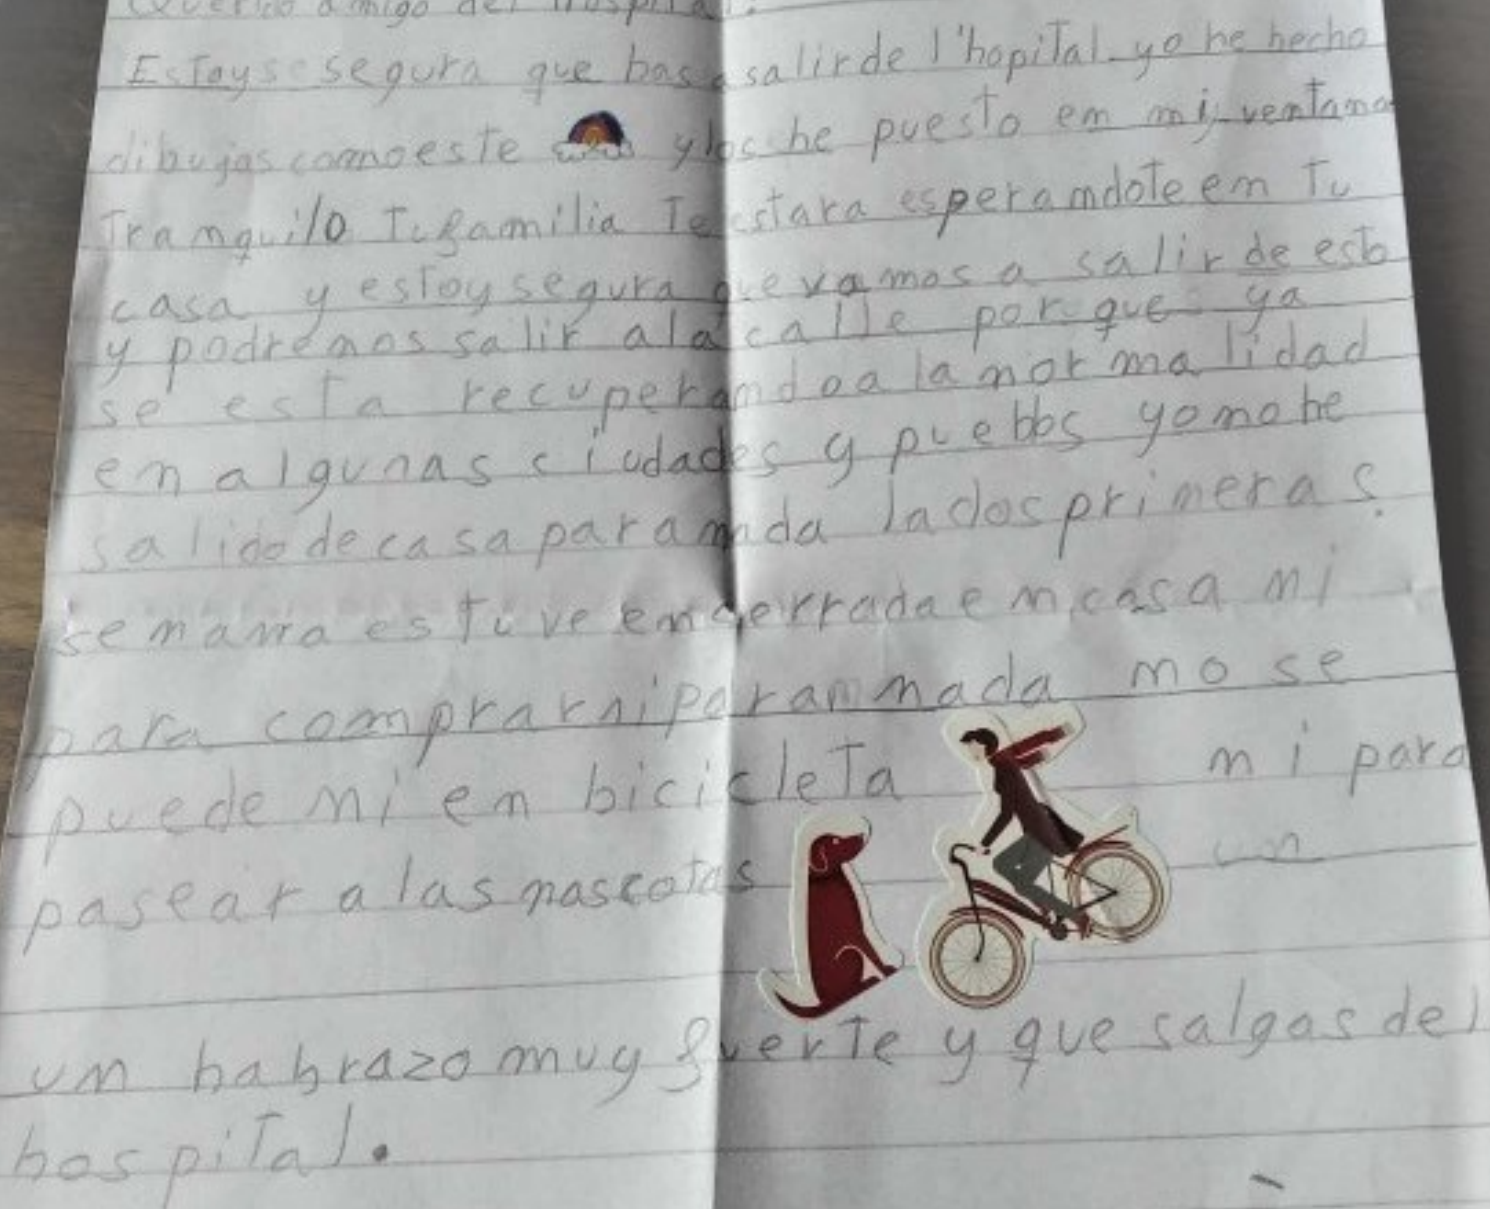 Querido amigo del Hospital.
Estoyse segura que bas a salirde l'hopital yo he hecho
dibujos comoeste y los he puesto em mi ventana
Tramquilo Tu familia Te estara esperamdote em Tu
casa y estoy segura que vamos a salir de esto
y podremos salir ala calle porque ya
se esta recuperando a la mormalidad
em algunas ciudades y pueblos yo mo he
salido de casa para mada las dos primeras
semama estuve encerrada em casa mi
para comprar ni para mmada mo se
puede mi em bicicleta mi para
pasear a las mascotas un
um habrazo muy fuerte y que salgas del
hospital.